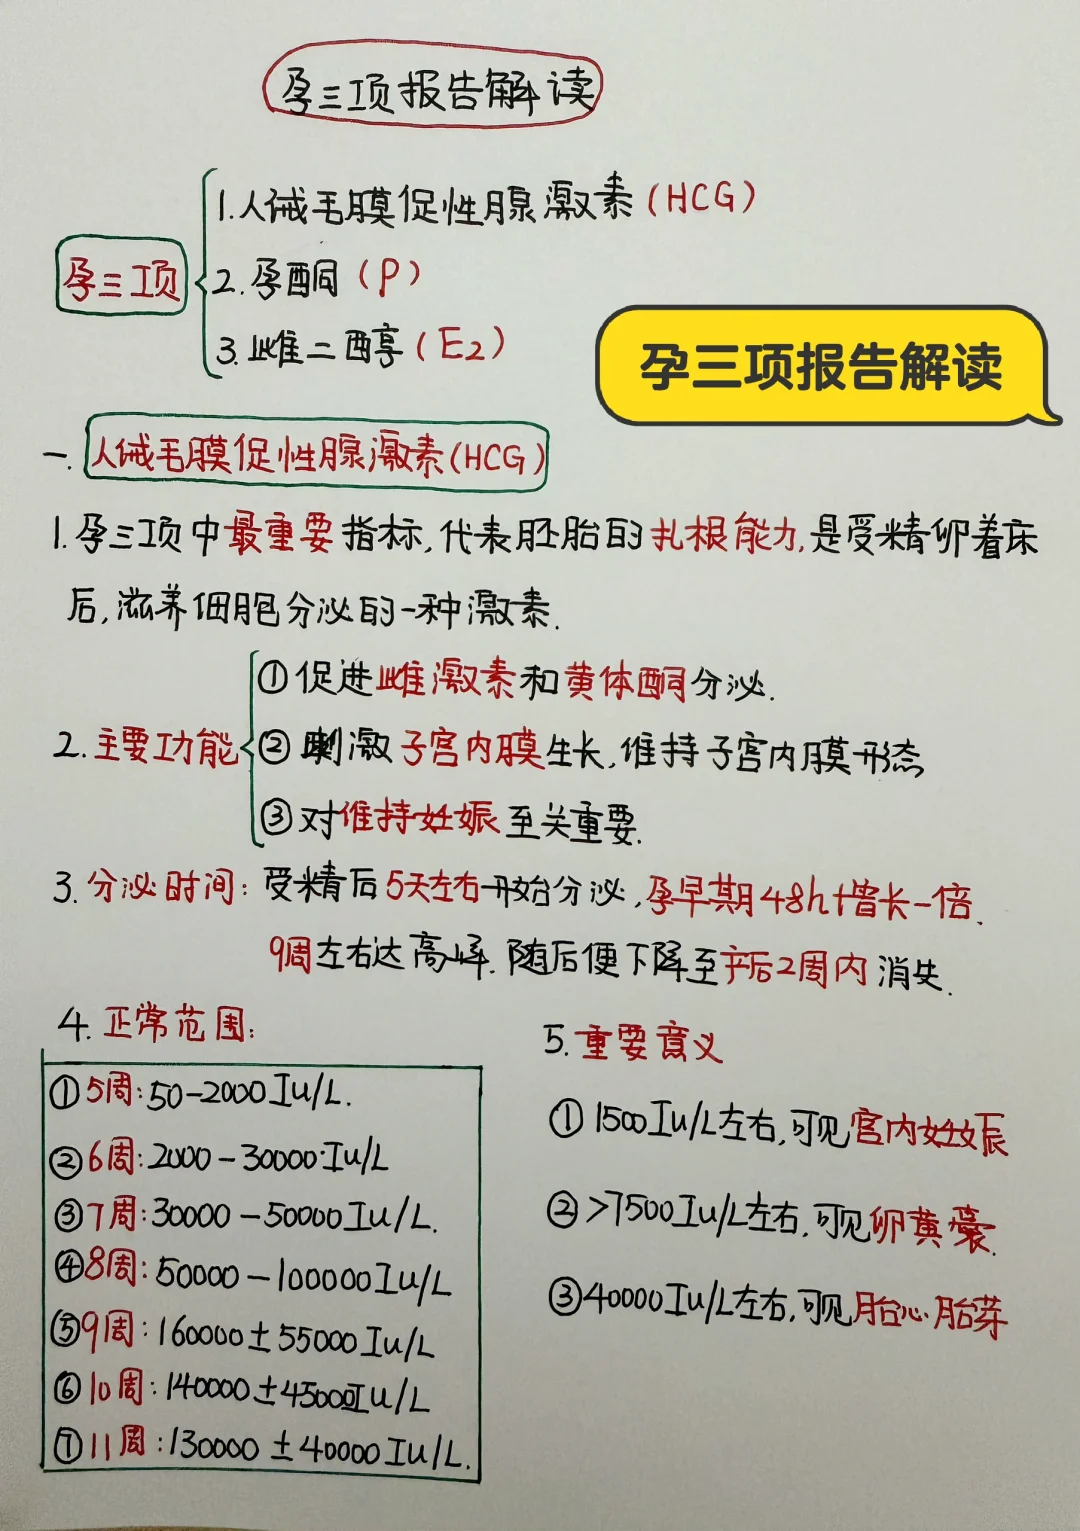 孕三项报告解读
孕三项
1.人绒毛膜促性腺激素(HCG)
2.孕酮(P)
3.雌二醇(E2)
孕三项报告解读
一.人绒毛膜促性腺激素(HCG)
1.孕三项中最重要指标,代表胚胎的扎根能力,是受精卵着床
后,滋养细胞分泌的一种激素.
2.主要功能
①促进雌激素和黄体酮分泌.
②刺激子宫内膜生长,维持子宫内膜形态
③对维持妊娠至关重要.
3.分泌时间:受精后5天左右开始分泌,孕早期48h增长一倍.
9周左右达高峰.随后便下降至产后2周内消失.
4.正常范围:
①5周:50-2000Iu/L.
②6周:2000-30000Iu/L
③7周:30000-50000Iu/L.
④8周:50000-100000Iu/L
⑤9周:160000±55000Iu/L
⑥10周:140000±45000Iu/L
⑦11周:130000±40000Iu/L.
5.重要意义
①1500Iu/L左右,可见宫内妊娠
②>7500Iu/L左右,可见卵黄囊.
③40000Iu/L左右,可见胎心胎芽